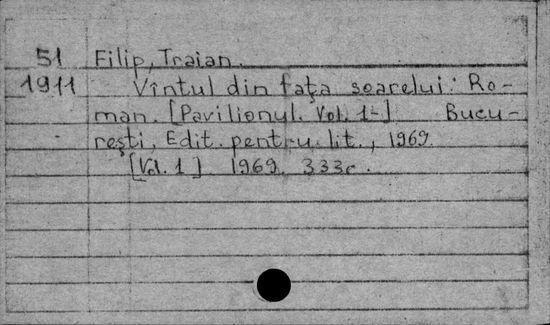 51 Filip, Traian.
1911 Vîntul din faţa soarelui: Ro-
man. [Pavilionul. Vol. 1-] Bucu-
reşti, Edit. pentru lit., 1969.
[Vol. 1] 1969. 333c.